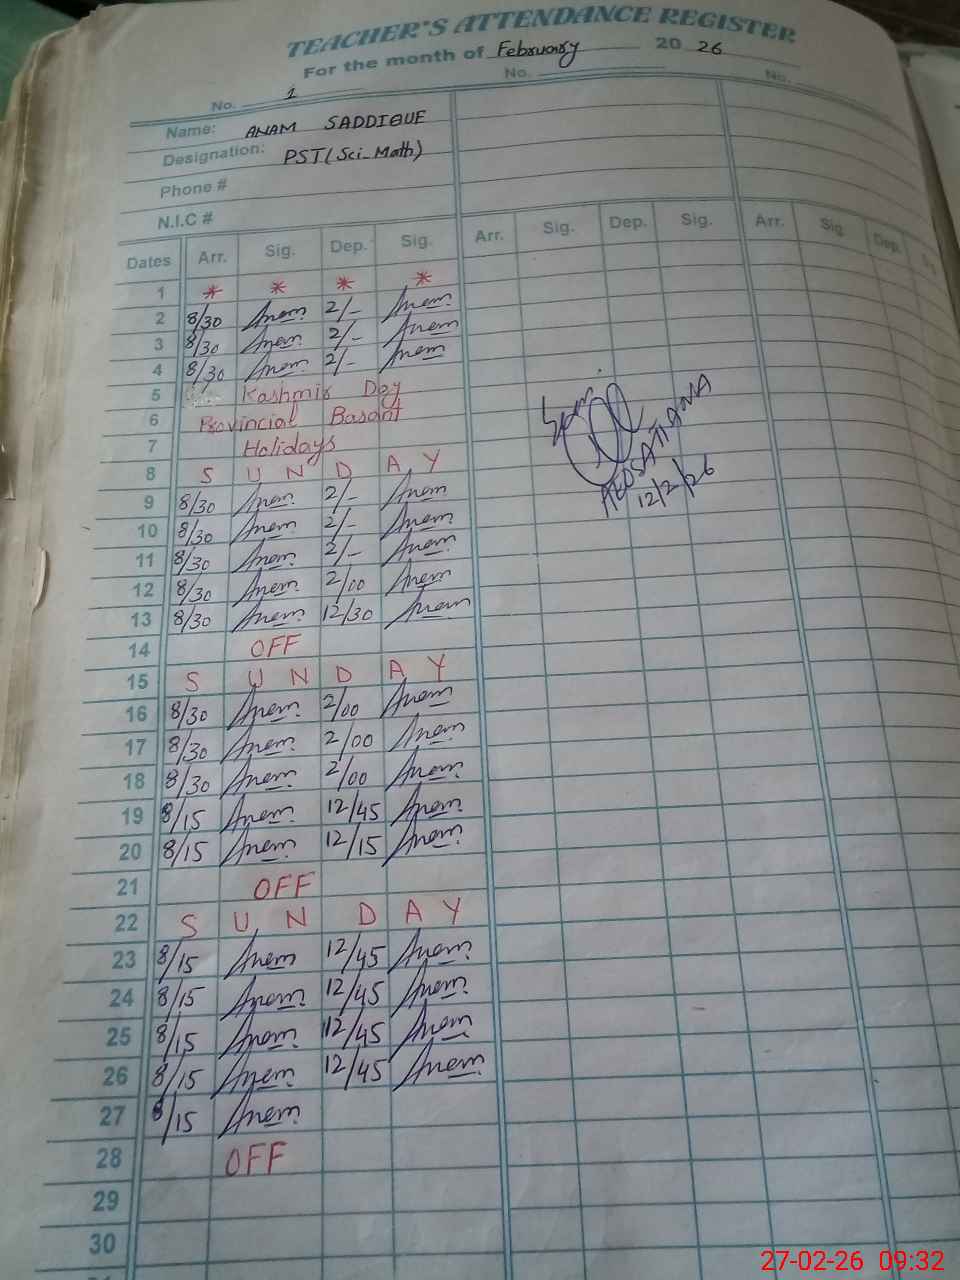 TEACHER'S ATTENDANCE REGISTER
For the month of February 20 26
No. 1 No. No.
Name: ANAM SADDIQUE
Designation: PST (Sci_Math)
Phone #
N.I.C #
Dates Arr. Sig. Dep. Sig. Arr. Sig. Dep. Sig. Arr. Sig. Dep.
1 * * * *
2 8/30 Anam 2/- Anam
3 8/30 Anam 2/- Anam
4 8/30 Anam 2/- Anam
5 Kashmir Day
6 Provincial Basant
7 Holidays
8 S U N D A Y
9 8/30 Anam 2/- Anam
10 8/30 Anam 2/- Anam
11 8/30 Anam 2/- Anam
12 8/30 Anam 2/00 Anam
13 8/30 Anam 12/30 Anam
14 OFF
15 S U N D A Y
16 8/30 Anam 2/00 Anam
17 8/30 Anam 2/00 Anam
18 8/30 Anam 2/00 Anam
19 8/15 Anam 12/45 Anam
20 8/15 Anam 12/15 Anam
21 OFF
22 S U N D A Y
23 8/15 Anam 12/45 Anam
24 8/15 Anam 12/45 Anam
25 8/15 Anam 12/45 Anam
26 8/15 Anam 12/45 Anam
27 8/15 Anam
28 OFF
29
30
AEO SATIANA
12/2/26
27-02-26 09:32